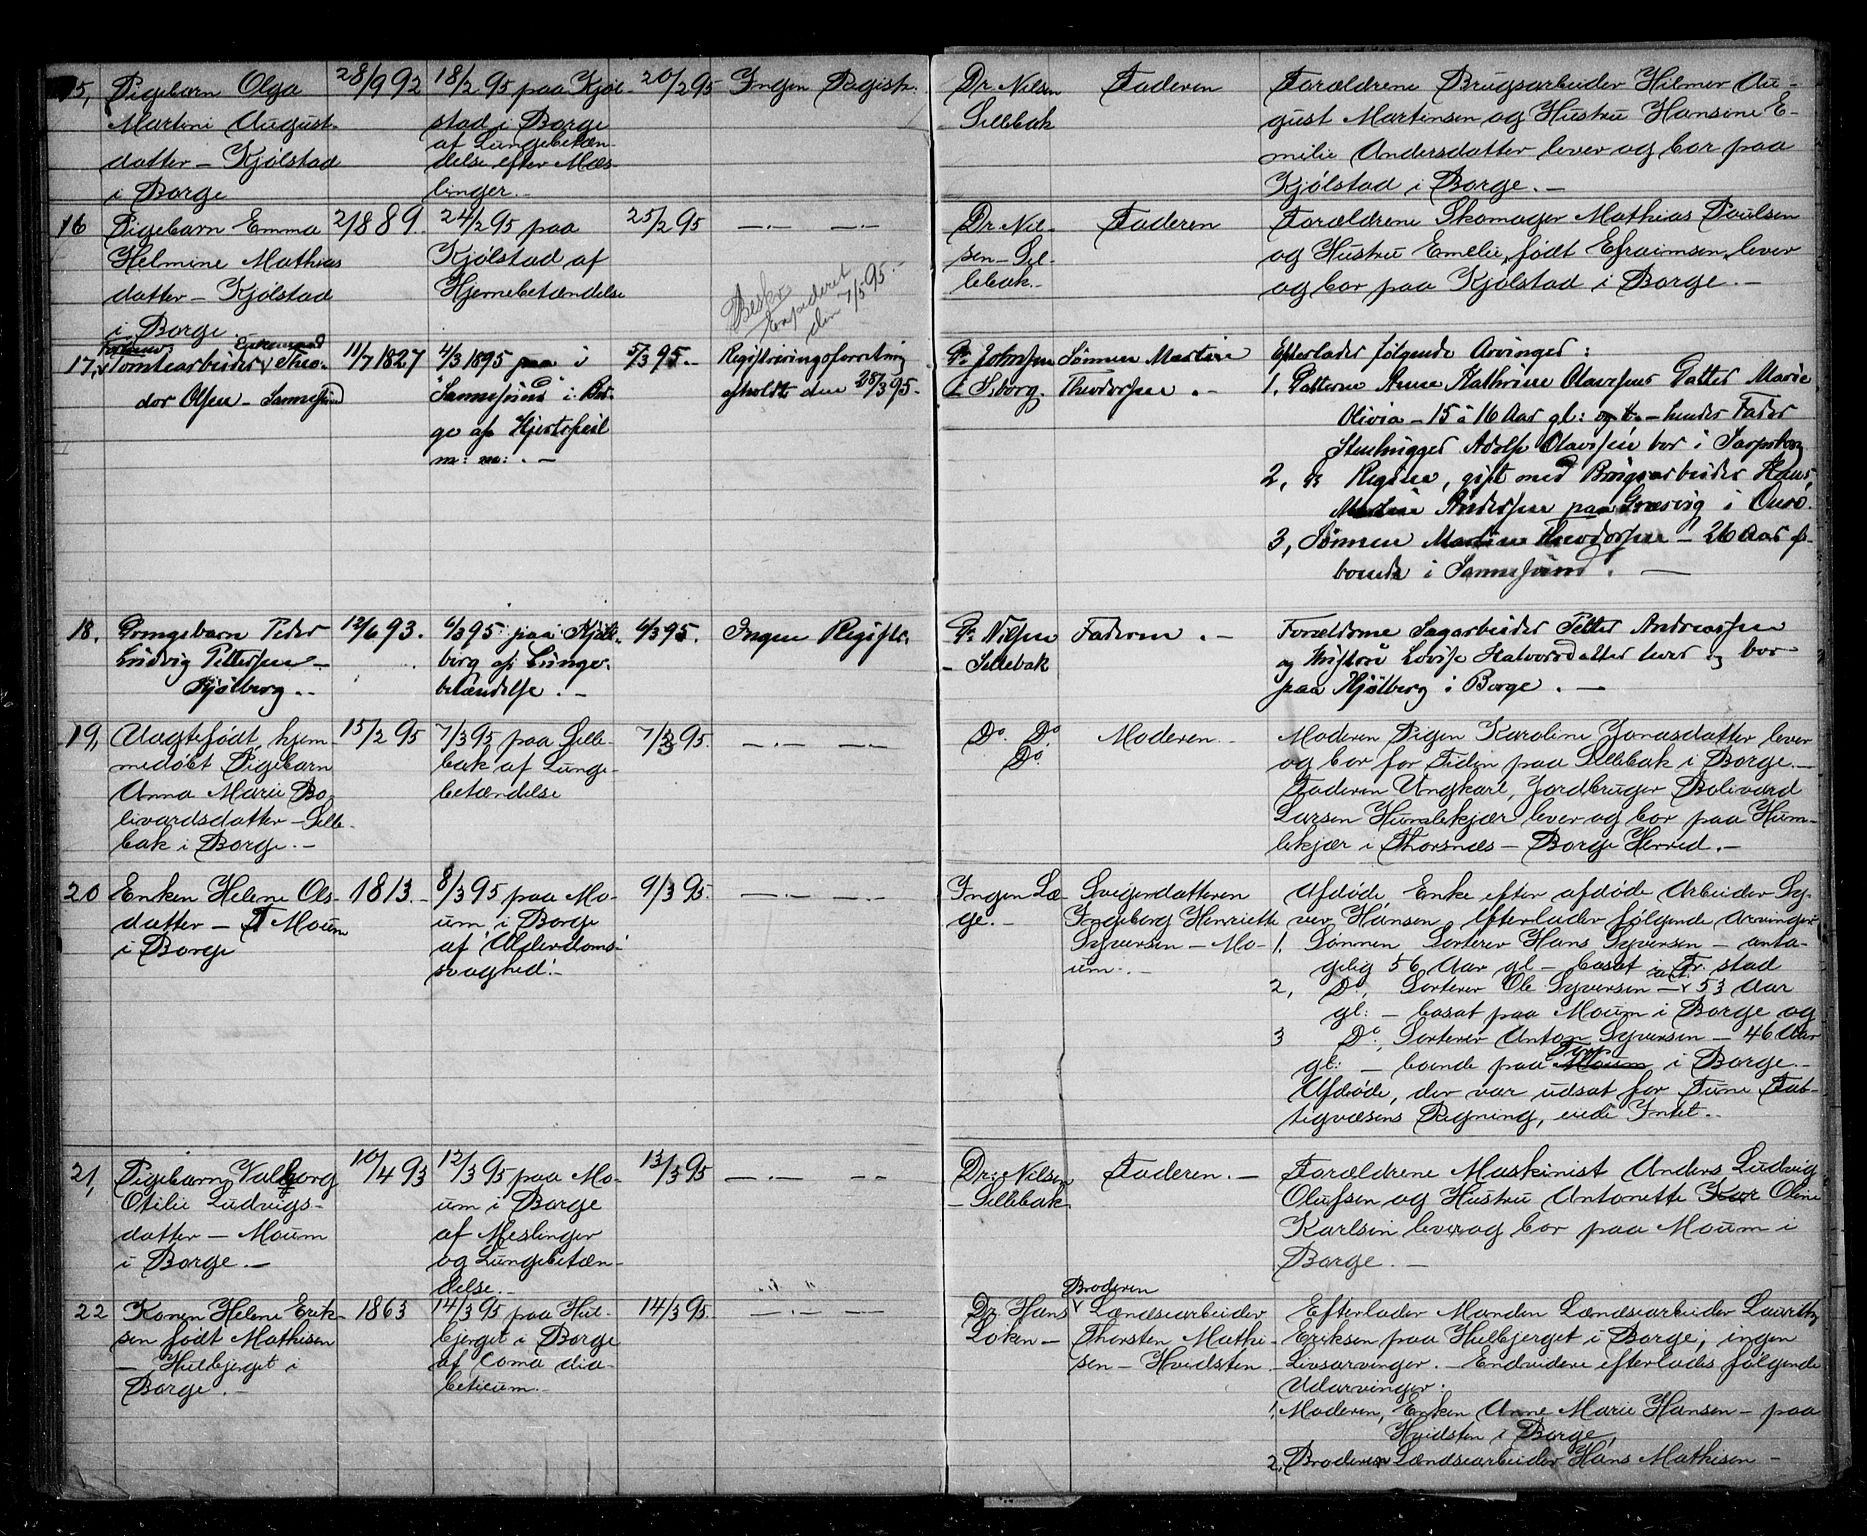 15, Pigebarn Olga
Martini August-
datter – Kjølstad
i Borge
28/9 92
18/2 95 paa Kjøl-
stad i Borge
af Lungebetæn-
delse efter Mæs-
linger. –
20/2 95
Ingen Regist.
Dr. Nilsen
Sellebak
Faderen
Forældrene Brugsarbeider Hilmer Au-
gust Martinsen og Hustru Hansine E-
milie Andersdatter lever og bor paa
Kjølstad i Borge. –
16 Pigebarn Emma
Helmine Mathias
datter – Kjølstad
i Borge.
2/8 89.
24/2 95 paa
Kjølstad af
Hjernebetændelse
25/2 95
—.— —.—
Dr. Nil-
sen – Sel-
lebak –
Faderen
Forældrene Skomager Mathias Paulsen
og Hustru Emelie, født Efraimsen, lever
og bor paa Kjølstad i Borge. –
Beskr.
Expederet
den 7/5 95. –
17, Enkemand
Tomtearbeider Theo-
dor Olsen – Sannesund
11/7 1827
4/3 1895 paa i
Sannesund i Bor-
ge af Hjertefeil
m: m: . –
5/3 95. –
Registreringsforretning
afholdt den 28/3 95. –
Dr. Johnsen
i Sborg.
Sønnen Martin
Theodorsen . –
Efterlader følgende Arvinger:
1. Datteren Anne Kathrine Olavsens Datter Marie
Olivia – 15 à 16 Aar gl: – hendes Fader
Stenhugger Adolf Olavsen bor i Sarpsborg
2, Do Regine, gift med Brugsarbeider Hans
Martin Andersen paa Græsvig i Onsø.
3, Sønnen Martin Theodorsen – 26 Aar g-
boende i Sannesund . —
18. Drengebarn Peder
Ludvig Pettersen –
Kjølberg. –
12/6 93.
4/3 95 paa Kjøl-
berg af Lunge-
betændelse . –
6/3 95.
Ingen Registr.
Dr. Nilsen
– Sellebak
Faderen . –
Forældrene Sagarbeider Petter Andreassen
og Hustru Lovise Halvorsdatter lever og bor
paa Kjølberg i Borge . —
19, Uægtefødt, hjem-
medøbt Pigebarn
Anna Marie Bo-
livardsdatter – Selle-
bak i Borge. –
15/2 95
7/3 95 paa Selle-
bak af Lunge-
betændelse
7/3 95.
—.— ——
Do. Do
Do.
Moderen. –
Moderen Pigen Karoline Jonasdatter lever
og bor for Tiden paa Sellebak i Borge. –
Faderen Ungkarl, Jordbruger Bolivard
Larsen Humlekjær lever og bor paa Hum-
lekjær i Thorsnæs – Borge Herred. –
20 Enken Helene Ols-
datter – Moum
i Borge
1813. –
8/3 95 paa Mo-
um, i Borge
af "Alderdoms-
svaghed". –
9/3 95.
—.— ——
Ingen Læ-
ge. –
Svigerdatteren
Ingeborg Henriette
Syversen – Mo-
um. –
Afdøde, Enke efter afdøde Arbeider Sy-
ver Hansen, efterlader følgende Arvinger:
1. Sønnen Sorterer Hans Syversen – anta-
gelig 56 Aar gl – bosat i Fr. stad
2, Do, Sorterer Ole Syversen – ant. 53 Aar
gl: – bosat paa Moum i Borge og
3 Do, Sorterer Anton Syversen – 46 Aar
gl: – boende paa Moum Torp i Borge. –
Afdøde, der var udsat for Tune Fat-
tigvæsens Regning, eiede Intet. –
21, Pigebarn Valborg
Otilie Ludvigs-
datter – Moum
i Borge. –
10/4 93
12/3 95 paa Mo-
um i Borge
af Meslinger
og Lungebetæn-
delse. –
13/3 95
—.— ——
Dr. Nilsen
– Sellebak
Faderen. –
Forældrene Maskinist Anders Ludvig
Olufsen og Hustru Antonette Kar Oline
Karlsen lever og bor paa Moum i
Borge. –
22 Konen Helene Erik-
sen født Mathisen
– Hulbjerget i
Borge. –
1863
14/3 95 paa Hul-
bjerget i Borge
af Coma dia-
beticum. –
14/3 95.
—.— ——
Dr. Hans
Loken –
Broderen
Lændsearbeider
Thorsten Mathi-
sen – Hvidsten
Efterlader Manden Lændsearbeider Lauritz
Eriksen paa Hulbjerget i Borge; ingen
Livsarvinger. – Endvidere efterlades følgende
Udarvinger:
1, Moderen, Enken Anne Marie Hansen – paa
Hvidsten i Borge,
2, Broderen Lændsearbeider Hans Mathisen –